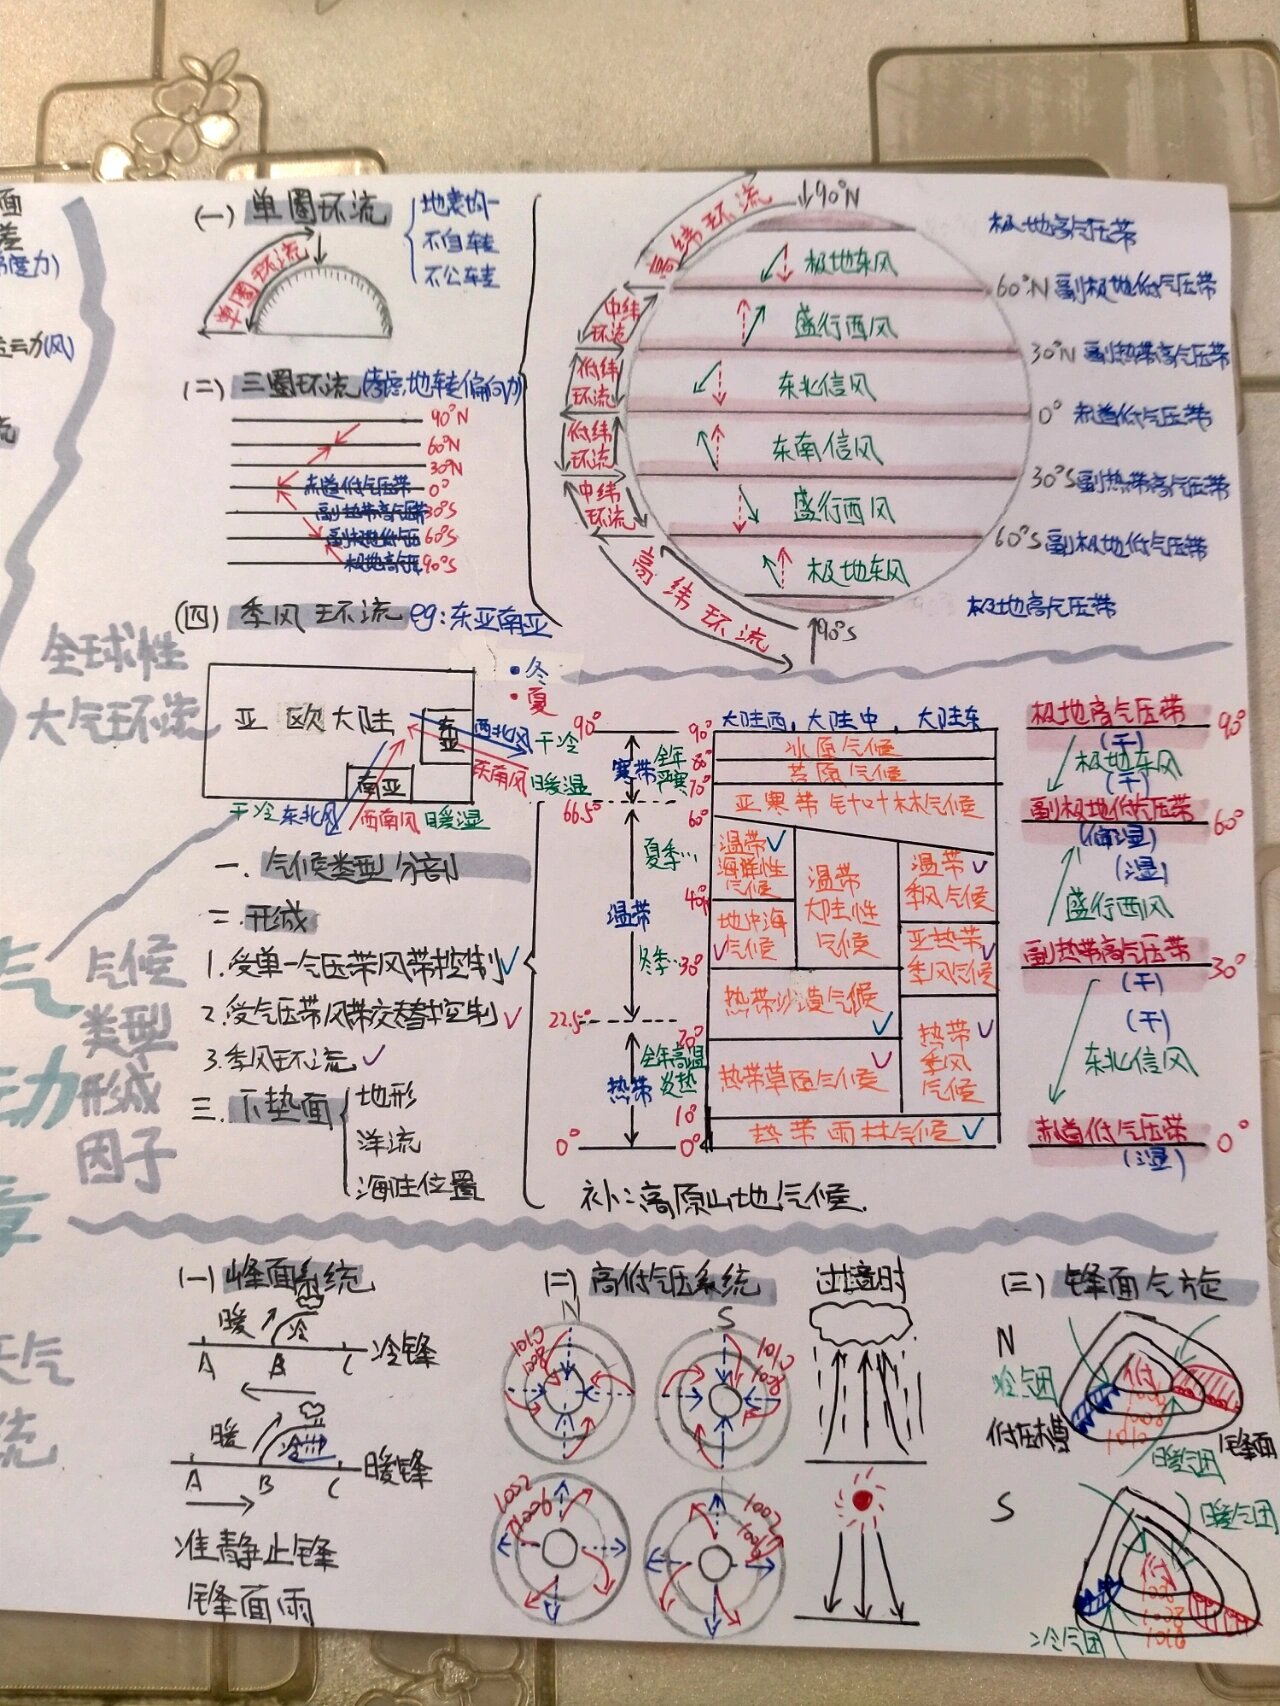 (一) 单圈环流
地表均一
不自转
不公转
单圈环流
(二) 三圈环流(考虑地转偏向力)
90°N
60°N
30°N
赤道低气压带 0°
副热带高气压带 30°S
副极地低气压 60°S
极地高气压 90°S
高纬环流
中纬环流
低纬环流
低纬环流
中纬环流
高纬环流
90°N 极地高气压带
极地东风
60°N 副极地低气压带
盛行西风
30°N 副热带高气压带
东北信风
0° 赤道低气压带
东南信风
30°S 副热带高气压带
盛行西风
60°S 副极地低气压带
极地东风
极地高气压带
90°S
(四) 季风环流 eg:东亚南亚
全球性
大气环流
·冬
·夏
亚欧大陆
东亚
南亚
西北风 干冷
东南风 暖湿
干冷 东北风
西南风 暖湿
气候
类型
形成
因子
一. 气候类型分部
二. 形成
1.受单一气压带风带控制✓
2.受气压带风带交替控制✓
3.季风环流✓
三. 下垫面
地形
洋流
海陆位置
90°
66.5°
22.5°
0°
寒带 全年严寒
温带
夏季…
冬季…
热带 全年高温炎热
90°
80°
70°
60°
40°
30°
20°
10°
0°
大陆西, 大陆中, 大陆东
冰原气候
苔原气候
亚寒带针叶林气候
温带海洋性气候✓
温带大陆性气候
温带季风气候✓
地中海气候✓
亚热带季风气候✓
热带沙漠气候✓
热带草原气候✓
热带季风气候✓
热带雨林气候✓
补:高原山地气候.
极地高气压带 90°
(干)
极地东风
(干)
副极地低气压带 60°
(偏湿)
(湿)
盛行西风
副热带高气压带 30°
(干)
(干)
东北信风
赤道低气压带 0°
(湿)
(一) 峰面系统
暖 冷
A B C 冷锋
暖 冷
A B C 暖锋
准静止锋
锋面雨
(二) 高低气压系统 过境时
N
S
1010
1008
1010
1008
1002
1006
1002
(三) 锋面气旋
N
冷气团
低压槽
低
1008
1010
暖气团
锋面
S
暖气团
低
冷气团